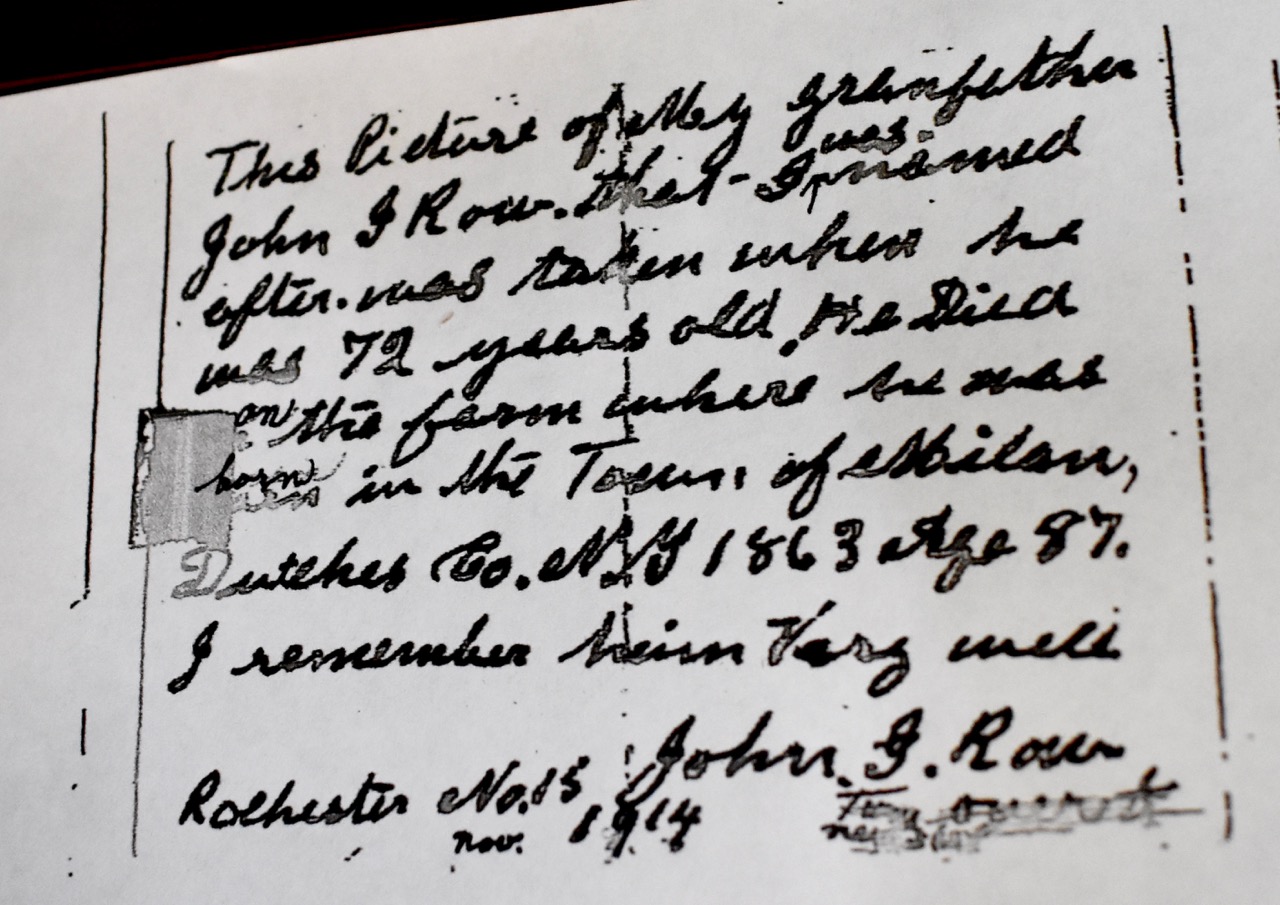 This Picture of My Granfather
John I Row. that I was named
after. was taken when he
was 72 years old. He Died
on the farm where he was
born in the Town of Milan,
Dutches Co. N.Y 1863 Age 87.
I remember heim Vary well
John. I. Row
Rochester No. 15 1914
nov.